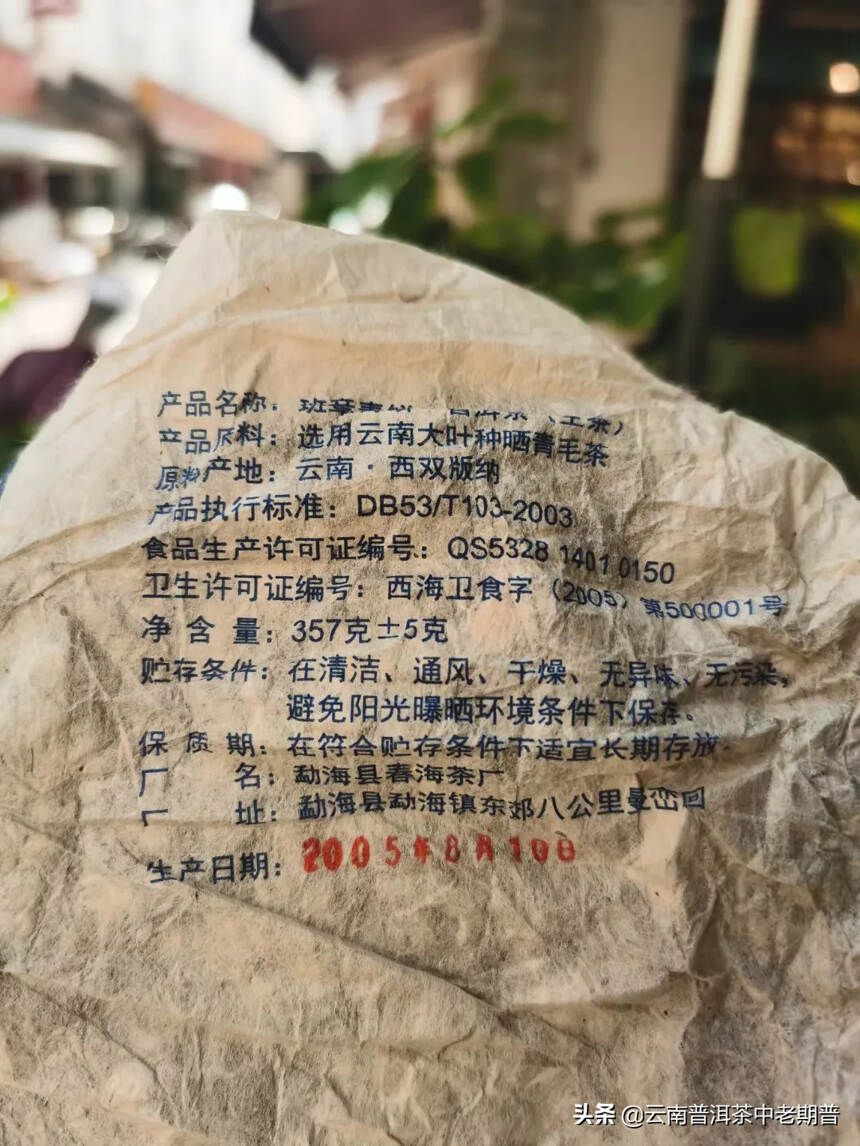 产品名称：班章青饼 普洱茶（生茶）
产品原料：选用云南大叶种晒青毛茶
原料产地：云南·西双版纳
产品执行标准：DB53/T103-2003
食品生产许可证编号：QS5328 1401 0150
卫生许可证编号：西海卫食字（2005）第500001号
净含量：357克±5克
贮存条件：在清洁、通风、干燥、无异味、无污染，
避免阳光曝晒环境条件下保存。
保质期：在符合贮存条件下适宜长期存放
厂名：勐海县春海茶厂
厂址：勐海县勐海镇东郊八公里曼峦回
生产日期：2005年8月10日
头条 @云南普洱茶中老期普